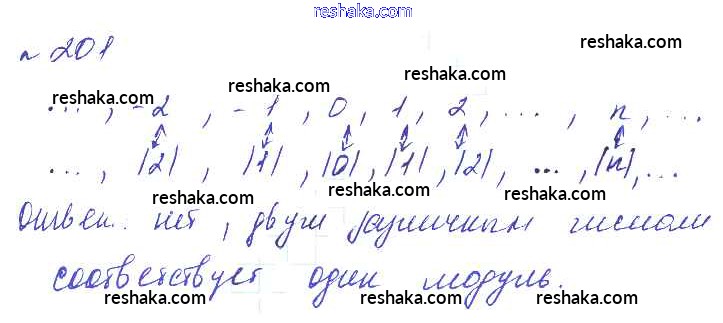 reshaka.com
№ 201
reshaka.com reshaka.com
..., -2, -1, 0, 1, 2, ..., n, ...
reshaka.com reshaka.com reshaka.com
..., |2|, |1|, |0|, |1|, |2|, ..., |n|, ...
reshaka.com reshaka.com
Ответ: нет, двум различным числам
reshaka.com reshaka.com
соответствует один модуль.
reshaka.com reshaka.com reshaka.com